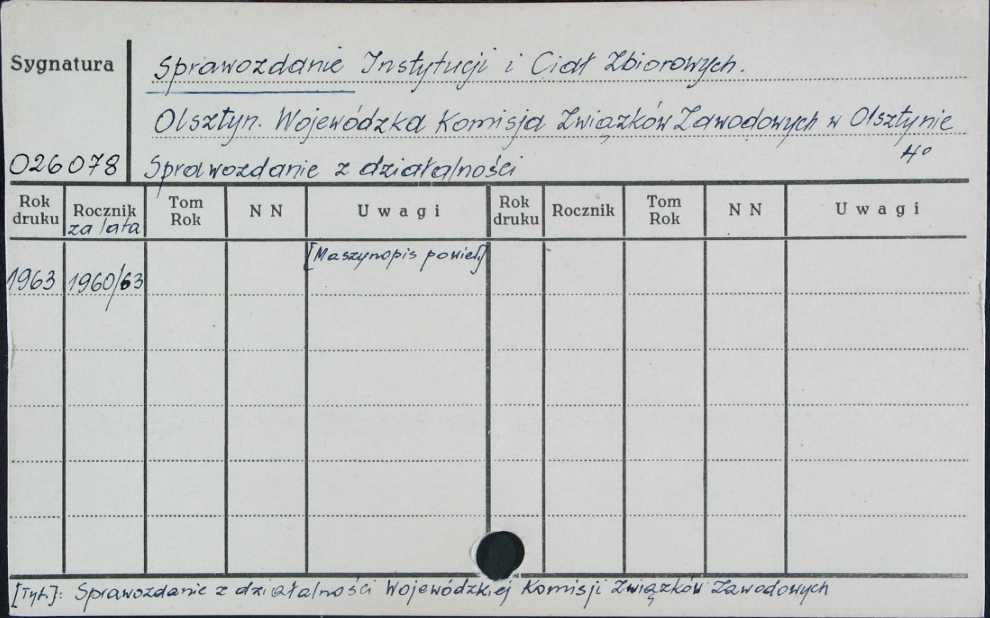 Sygnatura
Sprawozdanie Instytucji i Ciał Zbiorowych.
Olsztyn. Wojewódzka Komisja Związków Zawodowych w Olsztynie
4°
026078 Sprawozdanie z działalności
Rok druku Rocznik za lata Tom Rok N N Uwagi Rok druku Rocznik Tom Rok N N Uwagi
[Maszynopis powiel.]
1963 1960/63
[Tyt.]: Sprawozdanie z działalności Wojewódzkiej Komisji Związków Zawodowych